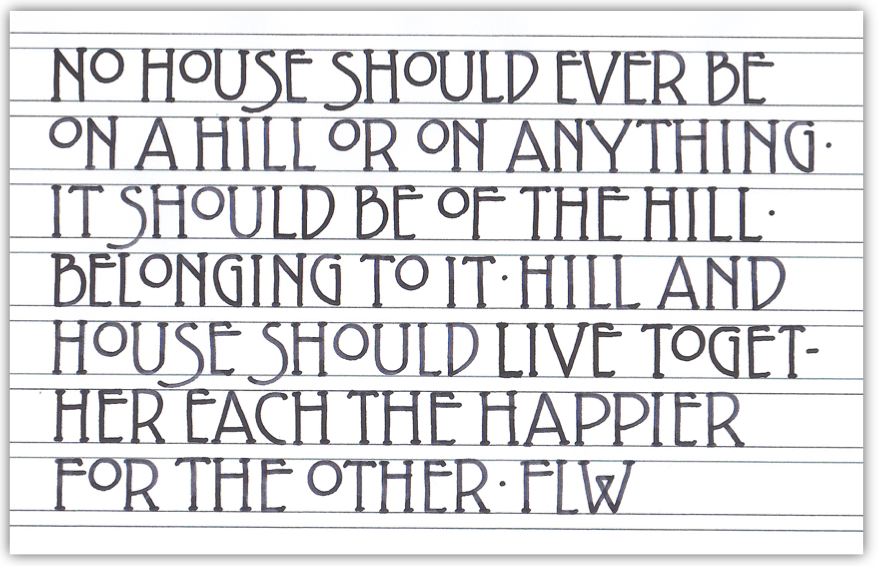 NO HOUSE SHOULD EVER BE
ON A HILL OR ON ANYTHING·
IT SHOULD BE OF THE HILL·
BELONGING TO IT·HILL AND
HOUSE SHOULD LIVE TOGET-
HER EACH THE HAPPIER
FOR THE OTHER·FLW